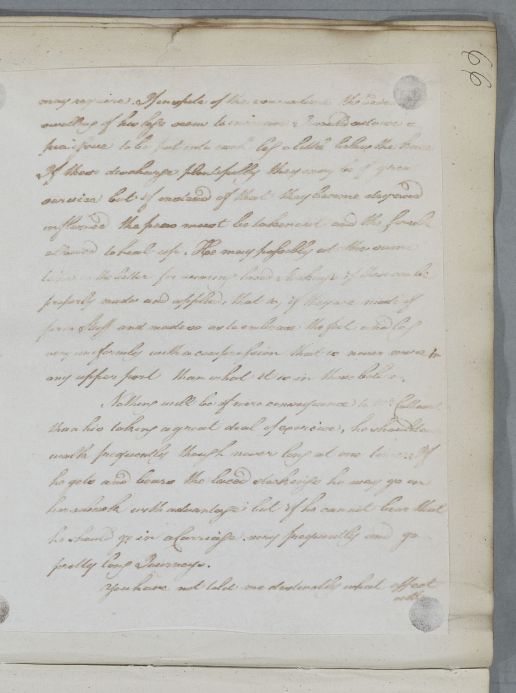 69
may require. If in spite of the evacuations the
swelling of his legs seem to increase I would advise a
pea issue to be put into each leg a little below the knee
If these discharge plentifully they may be of great
service but if instead of that they become dry and
inflamed the peas must be taken out and the
allowed to heal up. He may possibly at the same
time be the better for wearing laced stockings if these can be
properly made and applied, that is, if they are made of
firm stuff and made so as to embrace the foot and leg
very uniformly with a compression that is never more in
any upper part than what it is in those below.
Nothing will be of more consequence to Mr
than his taking a great deal of exercise, he should
walk frequently though never long at one time. If
he gets and bears the laced stockings he may go on
horseback with advantage; but if he cannot bear that
he should go in a Carriage very frequently and go
pretty long Journeys.
You have not told me distinctly what effect